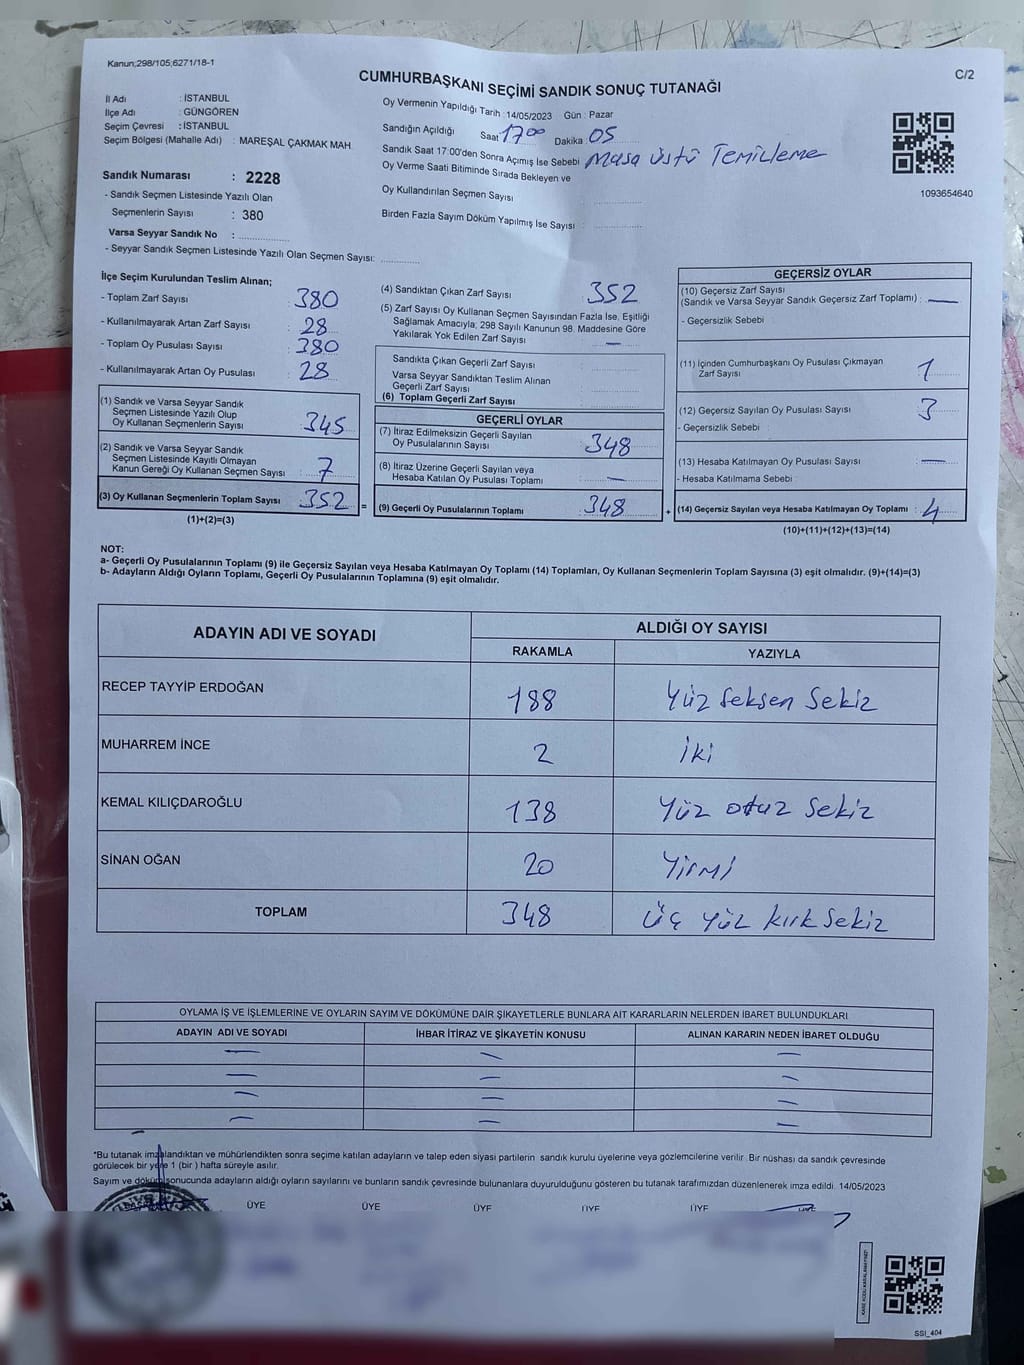 Kanun;298/105;6271/18-1
C/2
CUMHURBAŞKANI SEÇİMİ SANDIK SONUÇ TUTANAĞI
İl Adı : İSTANBUL
İlçe Adı : GÜNGÖREN
Seçim Çevresi : İSTANBUL
Seçim Bölgesi (Mahalle Adı) : MAREŞAL ÇAKMAK MAH.
Sandık Numarası : 2228
- Sandık Seçmen Listesinde Yazılı Olan
Seçmenlerin Sayısı : 380
Varsa Seyyar Sandık No :
- Seyyar Sandık Seçmen Listesinde Yazılı Olan Seçmen Sayısı:
Oy Vermenin Yapıldığı Tarih : 14/05/2023 Gün : Pazar
Sandığın Açıldığı Saat 17 00 Dakika : 05
Sandık Saat 17:00'den Sonra Açımış İse Sebebi Masa üstü Temizleme
Oy Verme Saati Bitiminde Sırada Bekleyen ve
Oy Kullandırılan Seçmen Sayısı
Birden Fazla Sayım Döküm Yapılmış İse Sayısı :
1093654640
İlçe Seçim Kurulundan Teslim Alınan;
- Toplam Zarf Sayısı : 380
- Kullanılmayarak Artan Zarf Sayısı : 28
- Toplam Oy Pusulası Sayısı : 380
- Kullanılmayarak Artan Oy Pusulası : 28
(1) Sandık ve Varsa Seyyar Sandık
Seçmen Listesinde Yazılı Olup
Oy Kullanan Seçmenlerin Sayısı : 345
(2) Sandık ve Varsa Seyyar Sandık
Seçmen Listesinde Kayıtlı Olmayan
Kanun Gereği Oy Kullanan Seçmen Sayısı : 7
(3) Oy Kullanan Seçmenlerin Toplam Sayısı : 352
(1)+(2)=(3)
=
(4) Sandıktan Çıkan Zarf Sayısı : 352
(5) Zarf Sayısı Oy Kullanan Seçmen Sayısından Fazla İse, Eşitliği
Sağlamak Amacıyla, 298 Sayılı Kanunun 98. Maddesine Göre
Yakılarak Yok Edilen Zarf Sayısı : —
Sandıkta Çıkan Geçerli Zarf Sayısı :
Varsa Seyyar Sandıktan Teslim Alınan
Geçerli Zarf Sayısı :
(6) Toplam Geçerli Zarf Sayısı :
GEÇERLİ OYLAR
(7) İtiraz Edilmeksizin Geçerli Sayılan
Oy Pusulalarının Sayısı : 348
(8) İtiraz Üzerine Geçerli Sayılan veya
Hesaba Katılan Oy Pusulası Toplamı : —
(9) Geçerli Oy Pusulalarının Toplamı : 348
+
GEÇERSİZ OYLAR
(10) Geçersiz Zarf Sayısı
(Sandık ve Varsa Seyyar Sandık Geçersiz Zarf Toplamı) : —
- Geçersizlik Sebebi
(11) İçinden Cumhurbaşkanı Oy Pusulası Çıkmayan
Zarf Sayısı : 1
(12) Geçersiz Sayılan Oy Pusulası Sayısı : 3
- Geçersizlik Sebebi
(13) Hesaba Katılmayan Oy Pusulası Sayısı : —
- Hesaba Katılmama Sebebi
(14) Geçersiz Sayılan veya Hesaba Katılmayan Oy Toplamı : 4
(10)+(11)+(12)+(13)=(14)
NOT:
a- Geçerli Oy Pusulalarının Toplamı (9) ile Geçersiz Sayılan veya Hesaba Katılmayan Oy Toplamı (14) Toplamları, Oy Kullanan Seçmenlerin Toplam Sayısına (3) eşit olmalıdır. (9)+(14)=(3)
b- Adayların Aldığı Oyların Toplamı, Geçerli Oy Pusulalarının Toplamına (9) eşit olmalıdır.
ADAYIN ADI VE SOYADI ALDIĞI OY SAYISI
RAKAMLA YAZIYLA
RECEP TAYYİP ERDOĞAN 188 Yüz Seksen Sekiz
MUHARREM İNCE 2 İki
KEMAL KILIÇDAROĞLU 138 Yüz otuz Sekiz
SİNAN OĞAN 20 Yirmi
TOPLAM 348 Üç Yüz Kırk Sekiz
OYLAMA İŞ VE İŞLEMLERİNE VE OYLARIN SAYIM VE DÖKÜMÜNE DAİR ŞİKAYETLERLE BUNLARA AİT KARARLARIN NELERDEN İBARET BULUNDUKLARI
ADAYIN ADI VE SOYADI İHBAR İTİRAZ VE ŞİKAYETİN KONUSU ALINAN KARARIN NEDEN İBARET OLDUĞU
— — —
— — —
— — —
— — —
*Bu tutanak imzalandıktan ve mühürlendikten sonra seçime katılan adayların ve talep eden siyasi partilerin sandık kurulu üyelerine veya gözlemcilerine verilir. Bir nüshası da sandık çevresinde
görülecek bir yere 1 (bir ) hafta süreyle asılır.
Sayım ve döküm sonucunda adayların aldığı oyların sayılarını ve bunların sandık çevresinde bulunanlara duyurulduğunu gösteren bu tutanak tarafımızdan düzenlenerek imza edildi. 14/05/2023
ÜYE ÜYE ÜYE ÜYE ÜYE
SSİ_404